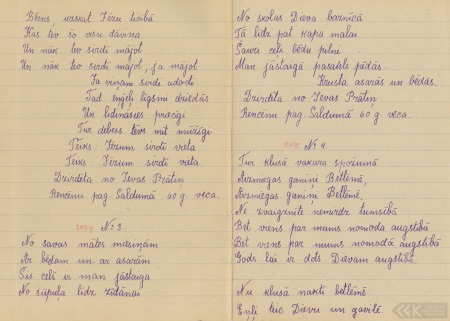 Bērns uzskat Jēzu ticībā
Kas tev šo visu dāvina
Un nāk tev sirdī mājot
Un nāk tev sirdī mājot, ja mājot
Ja viņam sirdi adodi
Tad eņģeļi līgsmi dziedās
Un līdināsies priecīgi
Tur debess tēvs mīt mūžīgi
Teiks: Jēzum sirdī vieta
Teiks: Jēzum sirdī vieta.
Dzirdēta no Ievas Prātiņ
Rencēnu pag. Saldumā 60 g veca.
№ 3.
No savas mātes miesiņām
Ar bēdam un ar asarām
Šis ceļš ir man jāstaigā
No šūpuļa līdz zūdānai
No skolas Dieva baznīcā
Tā līdz pat kapa malai
Sauri ceļi bēdu pilni
Man jāstaigā pasaules pēdās.
Krusta asarās un bēdās.
Dzirdēta no Ievas Prātiņ
Rencēnu pag. Saldumā 60 g veca.
№ 4.
Tur klusā vakara spožumā
Aizmiegas ganiņi Betlēmē,
Aizmiegas ganiņi Betlēmē,
Ne zvaigznīte nemirdz tumsībā
Bet viens par mums nomodā augstībā
Bet viens par mums nomodā augstībā
Gods lai ir dots Dievam augstībā.
Nu klusā naktī betlēmē
Eņģļi teic Dievu un gavilē.